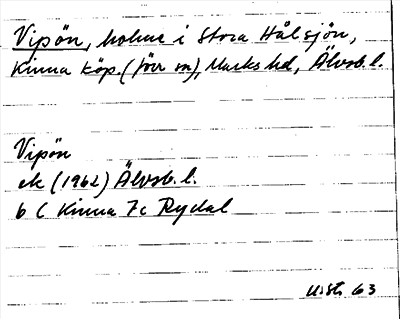 Vipön, holme i Stora Hålsjön,
Kinna köp. (förr sn), Marks hd, Älvsb. l.
Vipön
ek (1962) Älvsb. l.
6 C Kinna 7c Rydal
63